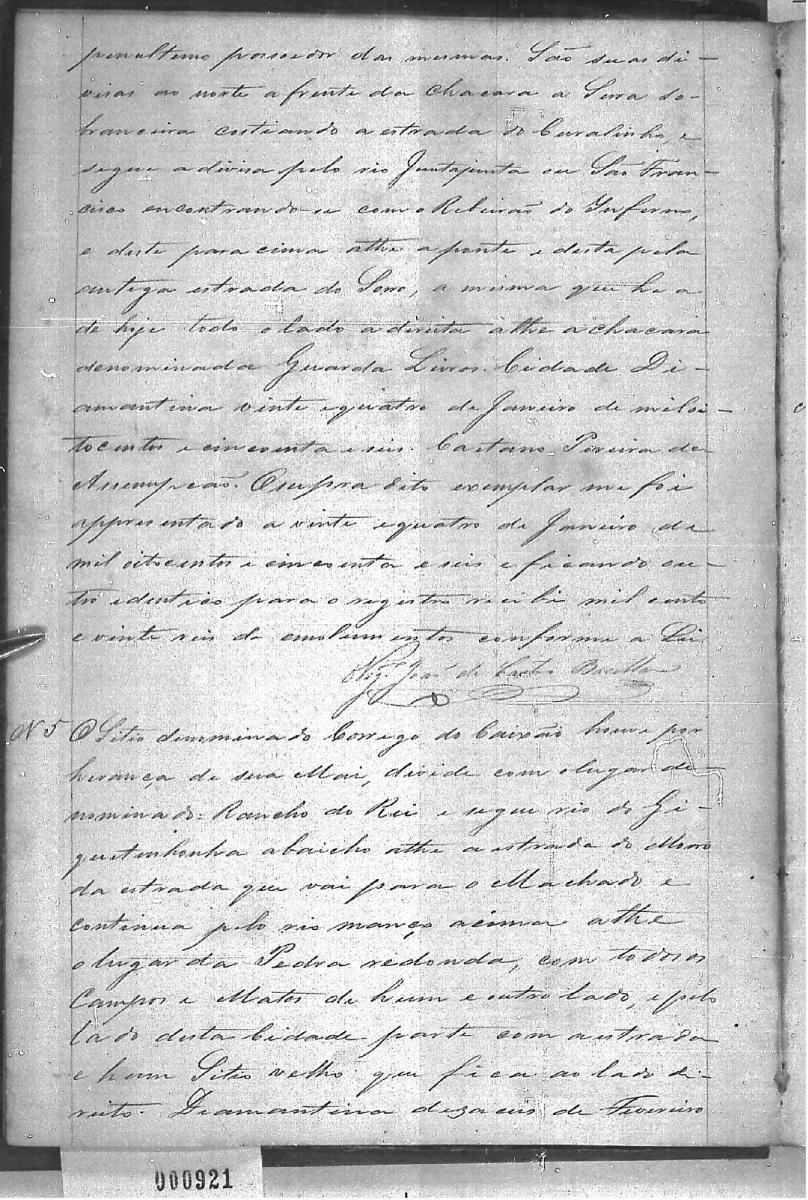 penultimo possoedor das mesmas. São suas di-
visas ao norte a frente da chacara a Serra so-
branceira costiando a estrada do Curalinho, e
segue a divisa pelo rio Juntajunta ou São Fran-
cisco encontrando se com o Ribeirão do Inferno,
e deste para cima athe a ponte e desta pela
antiga estrada do Serro, a mesma que he a
de hoje todo o lado a direita athe a chacara
denominada Guarda Livros. Cidade Di-
amantina vinte e quatro de Janeiro de mil oi-
tocentos e cincoenta e seis. Caetano Pereira de
Assumpcaõ. O supra dito exemplar me foi
appresentado a vinte e quatro de Janeiro de
mil oitocentos e cincoenta e seis e ficando ou-
tro identico para o registro recibi mil cento
e vinte reis de emolumentos conforme a Lei
Vigr.º Joaõ de Castro
Nº 5 O Sitio denominado Corrego do Caixão houve por
herança de sua Mai, divide com o lugar de-
nominado = Rancho do Rei e segue rio do Gi-
quetinhonha abaicho athe a estrada do Morro
da estrada que vai para o Machado e
continua pelo rio manço acima athe
o lugar da Pedra redonda, com todos os
Campos e Matos de hum e outro lado, e pelo
lado desta Cidade parte com a estrada
e hum Sitio velho que fica ao lado di-
reito. Diamantina desaceis de Fevereiro
000921